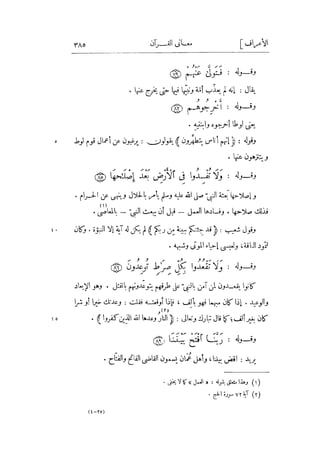 الأعراف ] معانى القرآن ٣٨٥
وقوله : فَتَوَلَّىٰ عَنْهُمْ ٧٩
يقال : إنه لم يعذّب أمّة ونبيّها فيها حتى يخرج عنها .
وقوله : أَخْرِجُوهُم ٨٢
يعنى لوطا أخرجوه وابنتيه .
وقوله : ﴿ إنهم أناس يتطهّرون ﴾ يقولون : يرغبون عن أعمال قوم لوط ٥
ويتنزهون عنها .
وقوله : وَلَا تُفْسِدُوا فِي ٱلْأَرْضِ بَعْدَ إِصْلَٰحِهَا ٨٥
وإصلاحها بعثة النبىّ صلى الله عليه وسلم يأمر بالحلال وينهى عن الحرام .
فذلك صلاحها . وفسادها العمل – قبل أن يبعث النبى – بالمعاصى (١) .
وقول شعيب : ﴿ قد جئتكم ببينة من ربكم ﴾ لم يكن له آية إلا النبوّة . وكان ١٠
لثمود الناقة ، ولعيسى إحياء الموتى وشبهه .
وقوله : وَلَا تَقْعُدُوا بِكُلِّ صِرَٰطٍ تُوعِدُونَ ٨٦
كانوا يقعدون لمن آمن بالنبىّ على طرقهم يتوعّدونهم بالقتل . وهو الإيعاد
والوعيد . إذا كان مبهما فهو بألف ، فإذا أوقعته فقلت : وعدتك خيرا أو شرا
كان بغير ألف ؛ كما قال تبارك وتعالى : ﴿ النار وعدها الله الذين كفروا (٢) ﴾ . ١٥
وقوله : رَبَّنَا ٱفْتَحْ بَيْنَنَا ٨٩
يريد : اقض بيننا ، وأهل عُمَان يسمون القاضى الفاتح والفتّاح .
(١) وهذا متعلق بقوله : « العمل » كما لا يخفى .
(٢) آية ٧٢ سورة الحج .
(٢٥-٤)